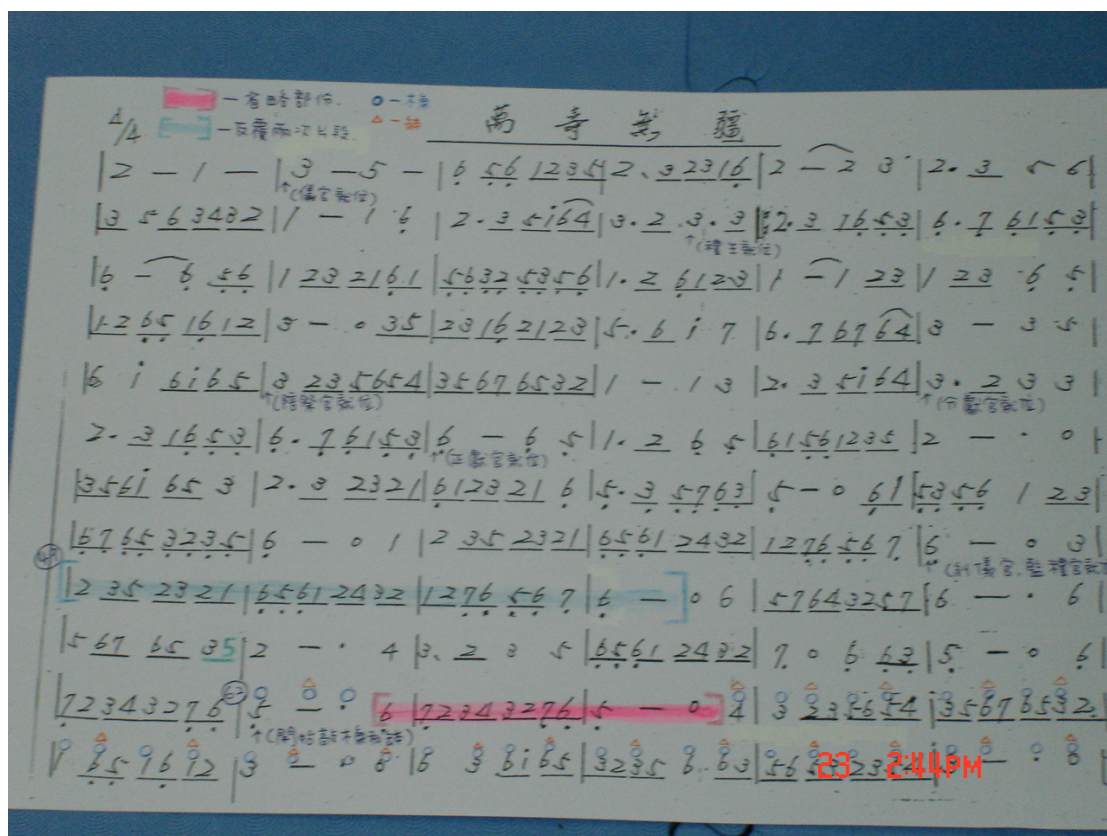 一省略部份. ○一木魚
4/4 一反覆兩次片段. △一鉢 萬壽無疆
|2 — 1 — |3 — 5 — |6 56 1235|2. 3 2316|2 — 2 3 |2. 3 5 6|
↑(儀官就位)
|3 5 6 3432|1 — 1 6 |2. 3 5i64|3. 2 3. 3|:2. 3 1653|6. 7 6153|
↑(禮生就位)
|6 — 6 56|1 23 2161|5632 5356|1. 2 6123|1 — 1 23|1 23 6 5|
|1.265 1612|3 — 0 35|2316 2123|5. 6 i 7|6. 7 6764|3 — 3 5|
|6 i 6i65|3 235654|35676532|1 — 1 3|2. 3 5i64|3. 2 3 3|
↑(陪祭官就位) ↑(分獻官就位)
2. 3 1653|6. 7 6153|6 — 6 5|1. 2 6 5|61561235|2 — · 0|
↑(正獻官就位)
|356i 65 3|2. 3 2321|612321 6|5. 3 5763|5 — 0 61|5356 1 23|
|6765 3235|6 — 0 1|2 35 2321|6561 2432|1276 567|6 — 0 3|
↑(糾儀官.監禮官就位
[2 35 2321|6561 2432|1276 567|6 —] 0 6|57643257|6 — · 6|
|5 67 65 35|2 — · 4|3. 2 3 5|6561 2432|7 0 6 63|5 — 0 6|
|72343276|5 — · [6|72343276|5 — 0] 4|3 235654|35676532.
↑(開始敲木魚和鉢)
1 65 1612|3 — 0 6|6 3 6i65|3235 6. 63|
23 2:44PM